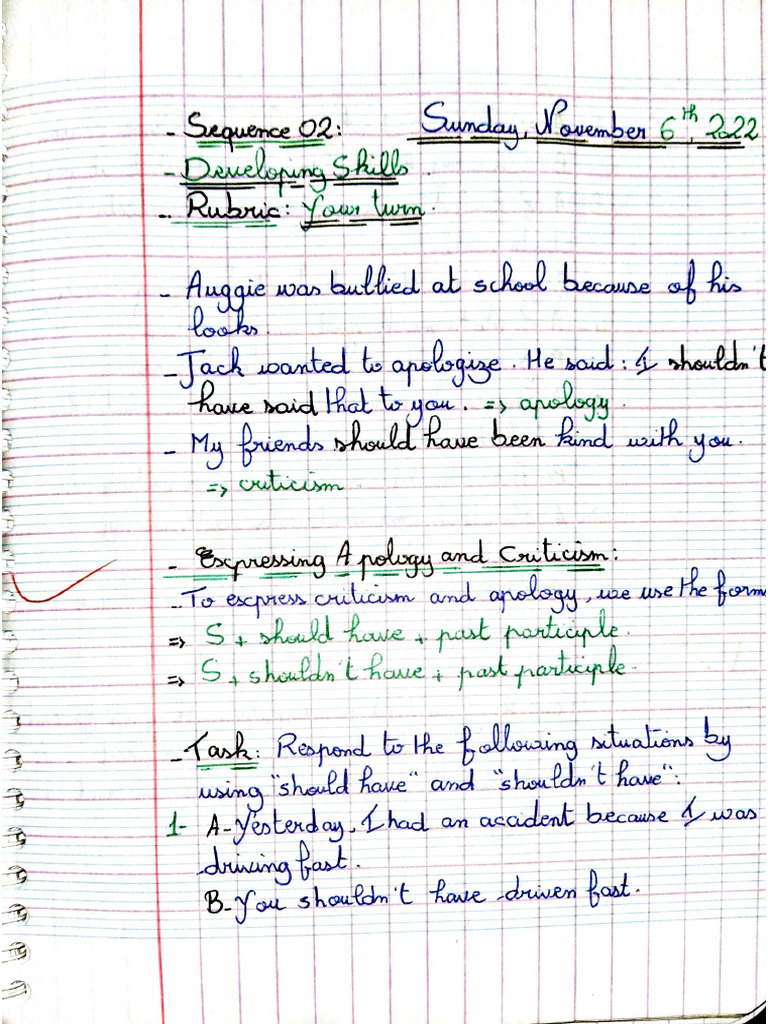 - Sequence 02: Sunday, November 6th, 2022
- Developing Skills.
- Rubric: Your turn.
- Auggie was bullied at school because of his
looks.
- Jack wanted to apologize. He said: I shouldn't
have said that to you. => apology.
- My friends should have been kind with you.
=> criticism.
- Expressing Apology and Criticism:
- To express criticism and apology, we use the form
=> S + should have + past participle.
=> S + shouldn't have + past participle.
- Task: Respond to the following situations by
using "should have" and "shouldn't have":
1- A- Yesterday, I had an accident because I was
driving fast.
B- You shouldn't have driven fast.